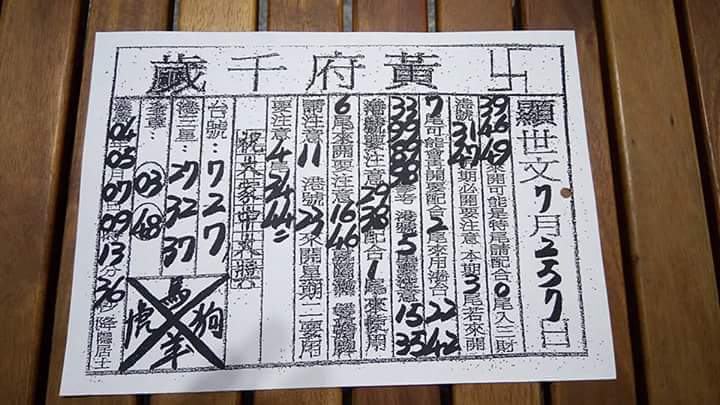 卐黃府千歲
顯世文 7月 日
39 46 49 來開可能是特尾請配合0尾入三財
港號 31 47 本期必開要注意 本期3尾若來開
7尾可能會再開要配合2尾來用 22 42
33 99 參考 港號 5 注意 15 35
港號要注意 29 38 配合1尾來 用
6尾 開要注意 16 46
請注意 11 港號 23 來開星期二要用
要注意 4 24 44 =
祝大家 中大獎
台號：7 2 7
港三星：27 32 37
03 48
04 05月07 09 13分36秒降臨居士
馬
虎 狗
羊